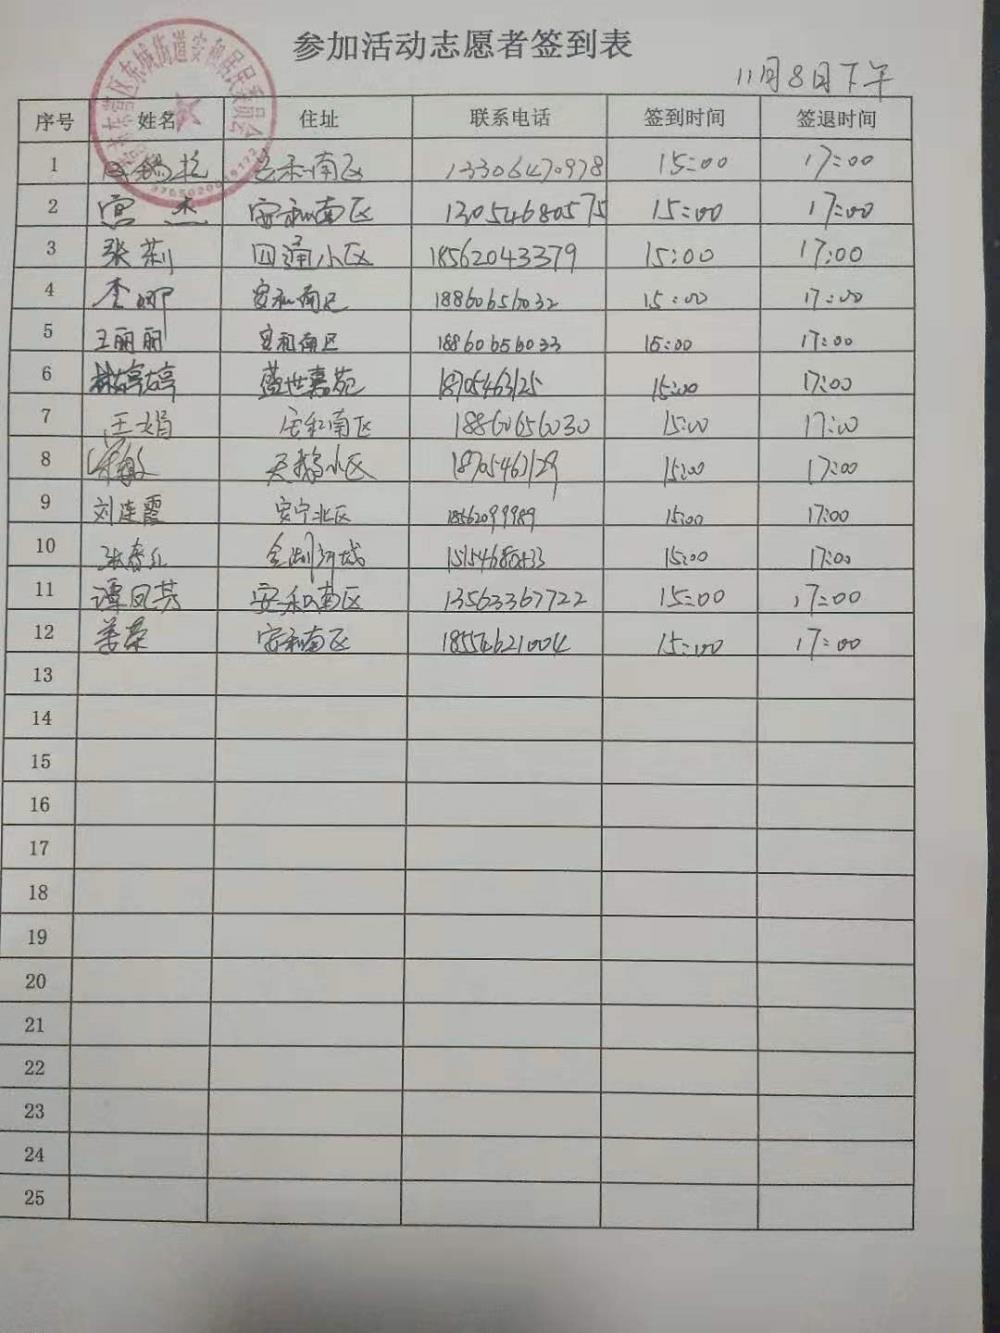 参加活动志愿者签到表
11月8日下午
序号 姓名 住址 联系电话 签到时间 签退时间
1 安和南区 13306470978 15:00 17:00
2 宫杰 安和南区 13054680575 15:00 17:00
3 张莉 四通小区 18562043379 15:00 17:00
4 李娜 安和南区 18860656032 15:00 17:00
5 王丽丽 安和南区 18860656033 15:00 17:00
6 林婷婷 盛世嘉苑 18705463125 15:00 17:00
7 王娟 安和南区 18860656030 15:00 17:00
8 天鹅小区 18705463129 15:00 17:00
9 刘连霞 安宁北区 18562099989 15:00 17:00
10 15:00 17:00
11 谭凤芳 安和南区 13563367722 15:00 17:00
12 姜荣 安和南区 18554621004 15:00 17:00
13
14
15
16
17
18
19
20
21
22
23
24
25